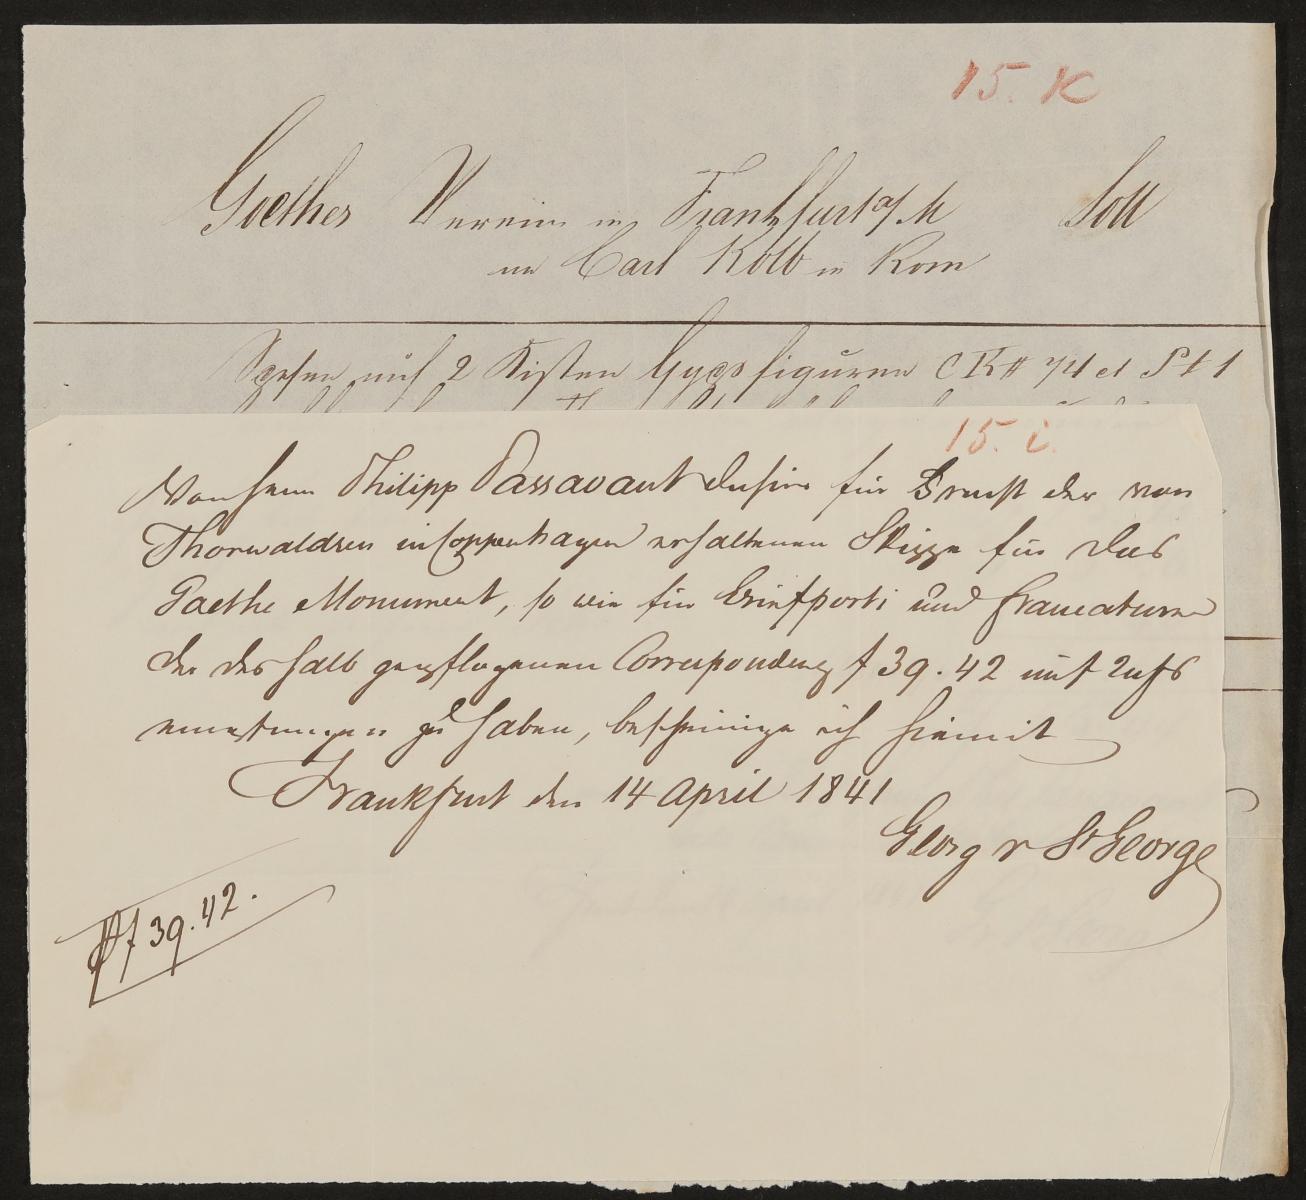 15. K
Goethes Verein in Frankfurt a/M Soll
an Carl Kolb in Rom
Spesen auf 2 Kisten Gypsfiguren C K # 74 et P t 1
15. i.
Von Herrn Philipp Passavant dahier für Fracht der von
Thorwaldsen in Coppenhagen erhaltenen Skizze für das
Goethe Monument, so wie für Briefporti und Francaturen
der deshalb gepflogenen Correspondenz f 39. 42
empfangen zu haben, bescheinige ich hiemit
Frankfurt den 14 April 1841
Georg v St George
f 39. 42.